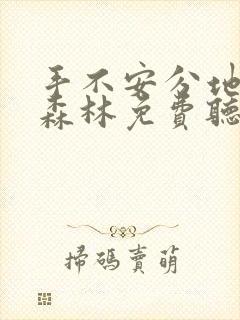 手不安分地
森林免費聽
掃碼賣萌